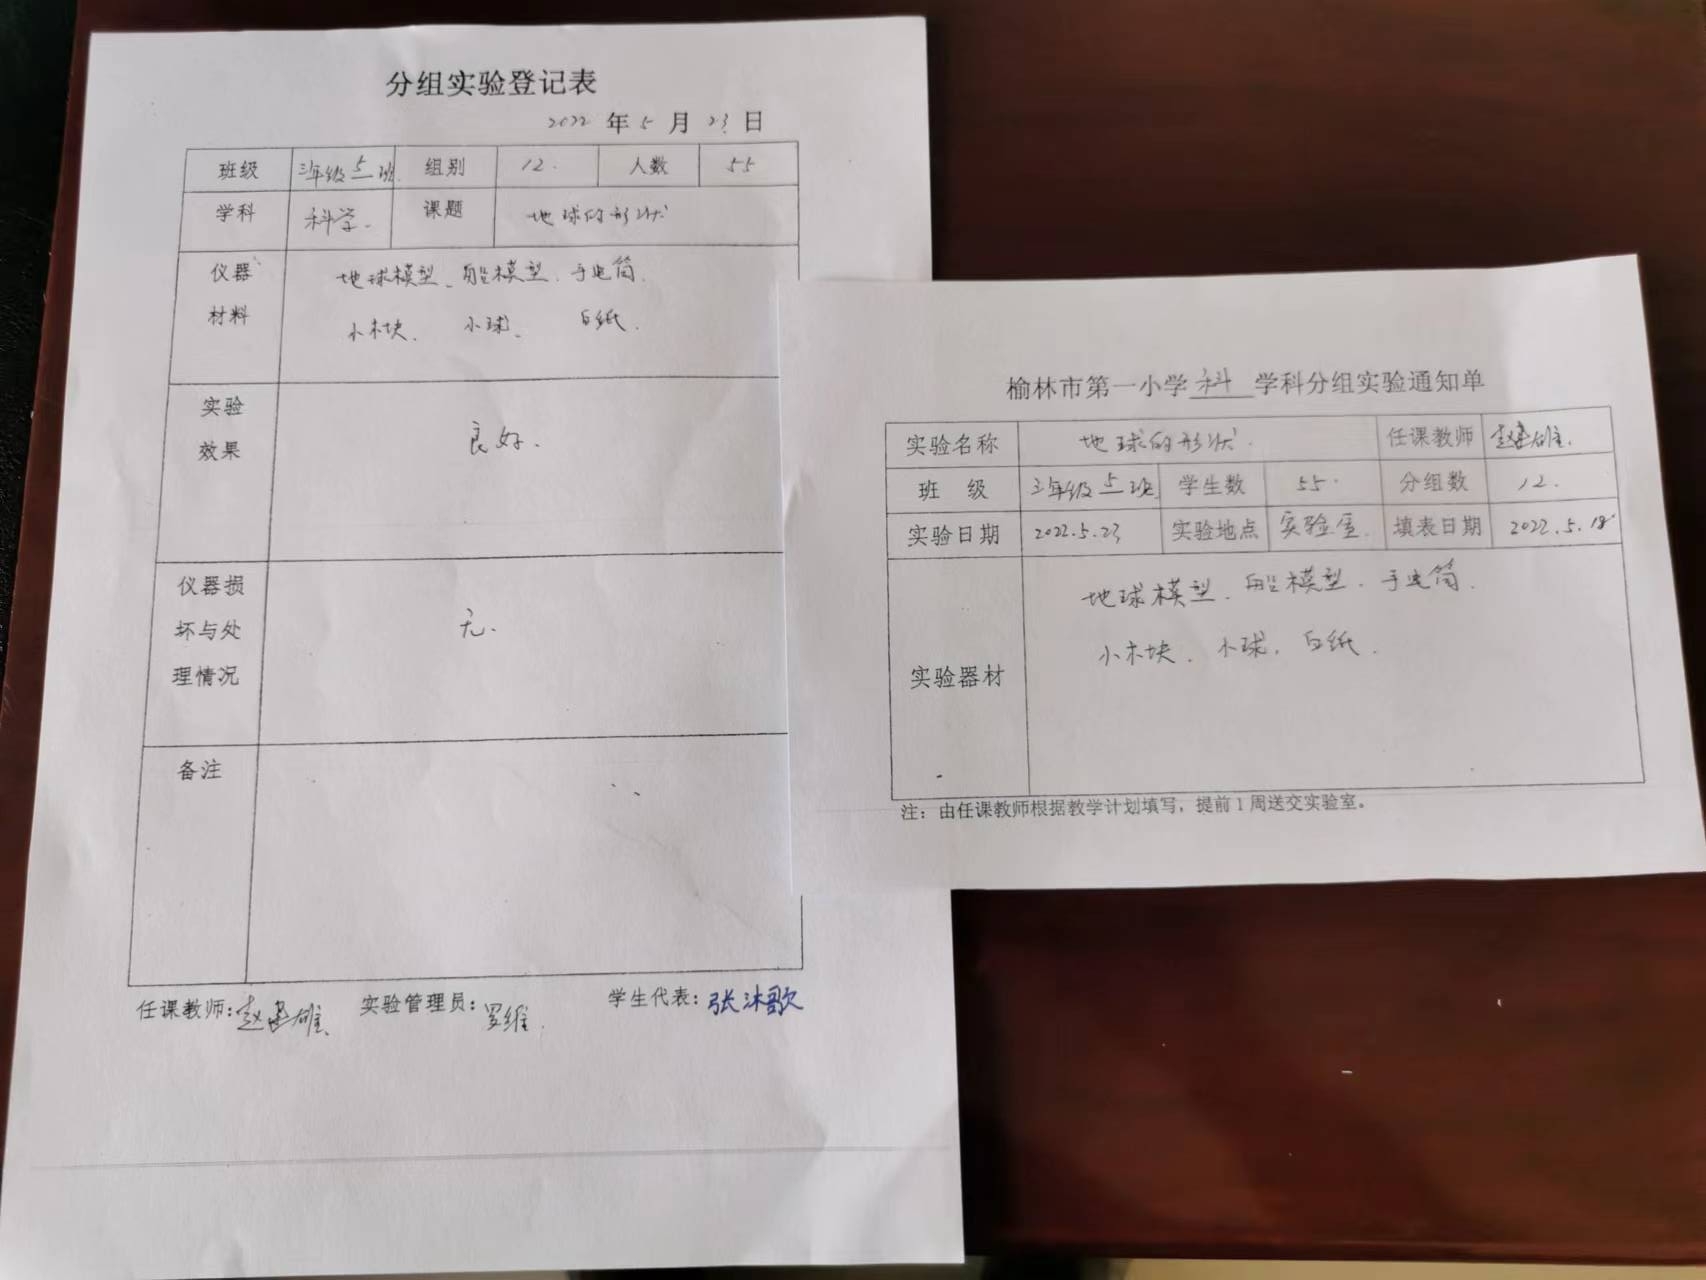 分组实验登记表
2022 年 5 月 23 日
班级 三年级5班 组别 12. 人数 55
学科 科学. 课题 地球的形状
仪器材料 地球模型、船模型、手电筒.
小木块、小球、白纸.
实验效果 良好.
仪器损坏与处理情况 无.
备注
任课教师:赵建雄 实验管理员:罗维. 学生代表:张沐歌
榆林市第一小学 科 学科分组实验通知单
实验名称 地球的形状. 任课教师 赵建雄.
班 级 三年级5班 学生数 55. 分组数 12.
实验日期 2022.5.23 实验地点 实验室. 填表日期 2022.5.18
实验器材 地球模型、船模型、手电筒.
小木块、小球、白纸.
注：由任课教师根据教学计划填写，提前1周送交实验室。